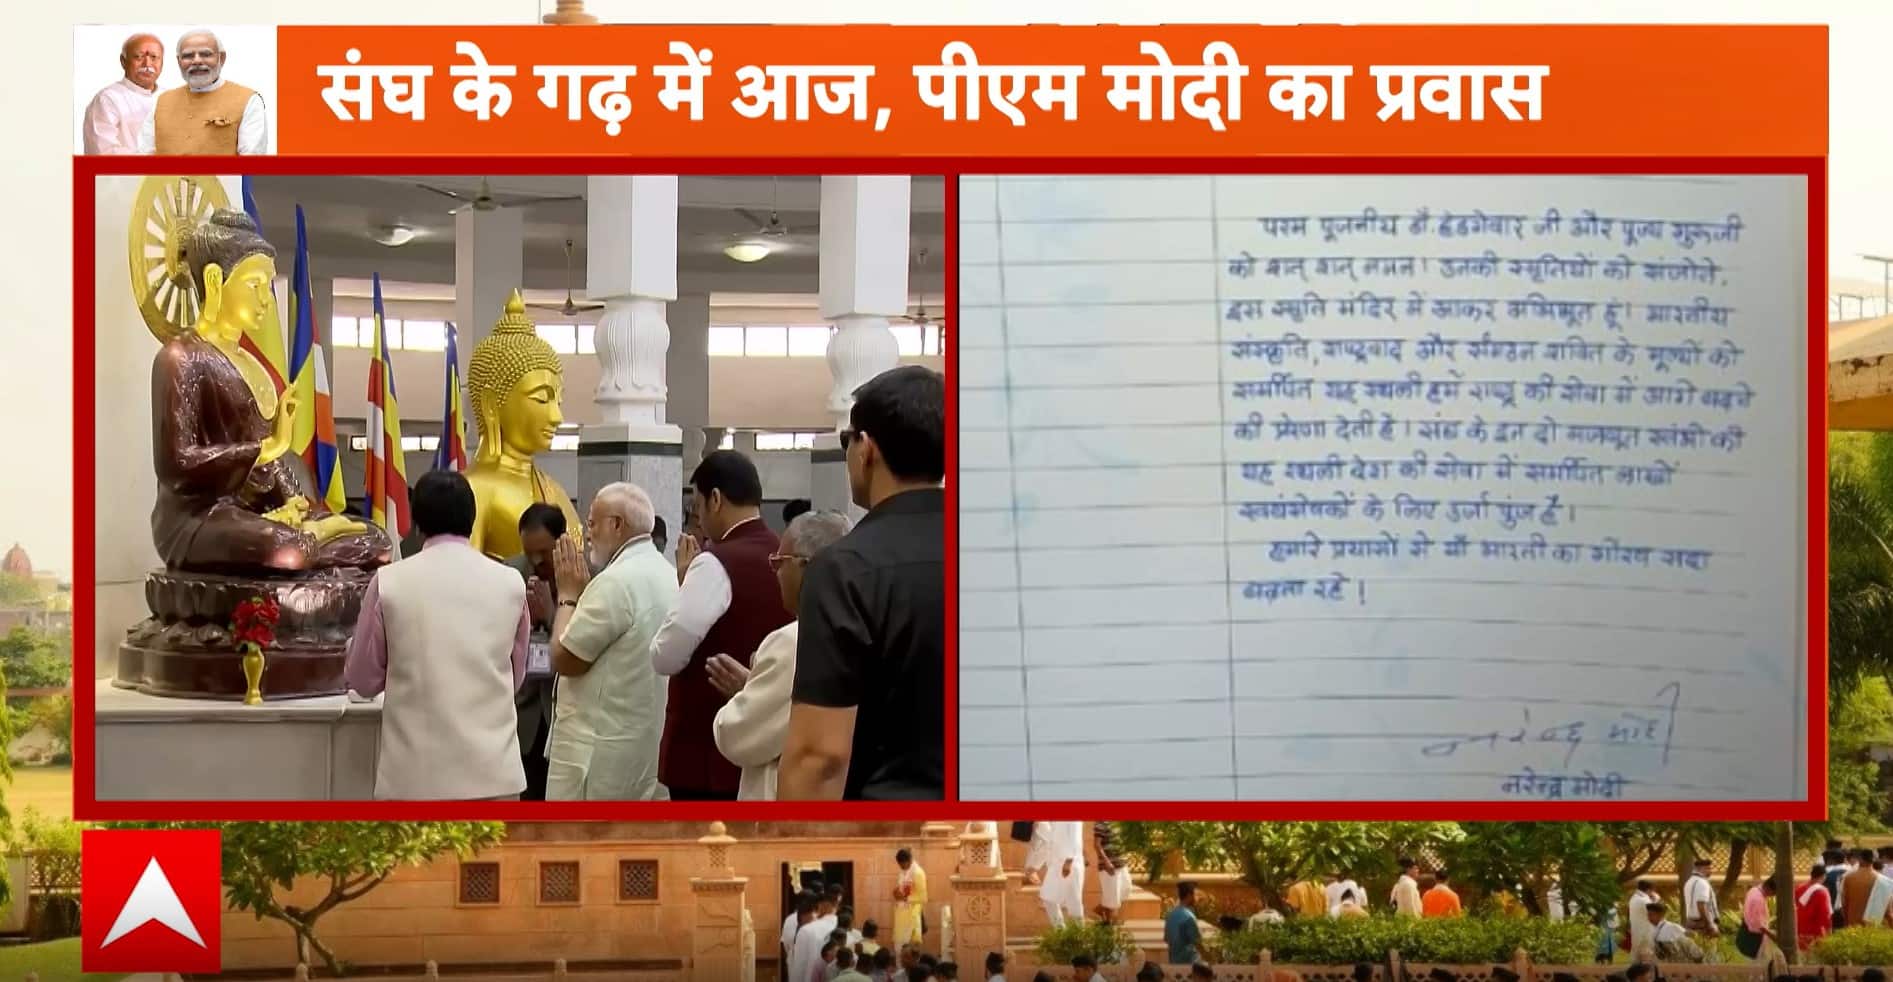 संघ के गढ़ में आज, पीएम मोदी का प्रवास
परम पूजनीय डॉ. हेडगेवार जी और पूज्य गुरुजी
को शत् शत् नमन। उनकी स्मृतियों को संजोते,
इस स्मृति मंदिर में आकर अभिभूत हूं। भारतीय
संस्कृति, राष्ट्रवाद और संगठन शक्ति के मूल्यों को
समर्पित यह स्थली हमें राष्ट्र की सेवा में आगे बढ़ने
की प्रेरणा देती है। संघ के इन दो मजबूत स्तंभों की
यह स्थली देश की सेवा में समर्पित लाखों
स्वयंसेवकों के लिए उर्जा पुंज है।
हमारे प्रयासों से माँ भारती का गौरव सदा
बढ़ता रहे!
नरेन्द्र मोदी
नरेन्द्र मोदी